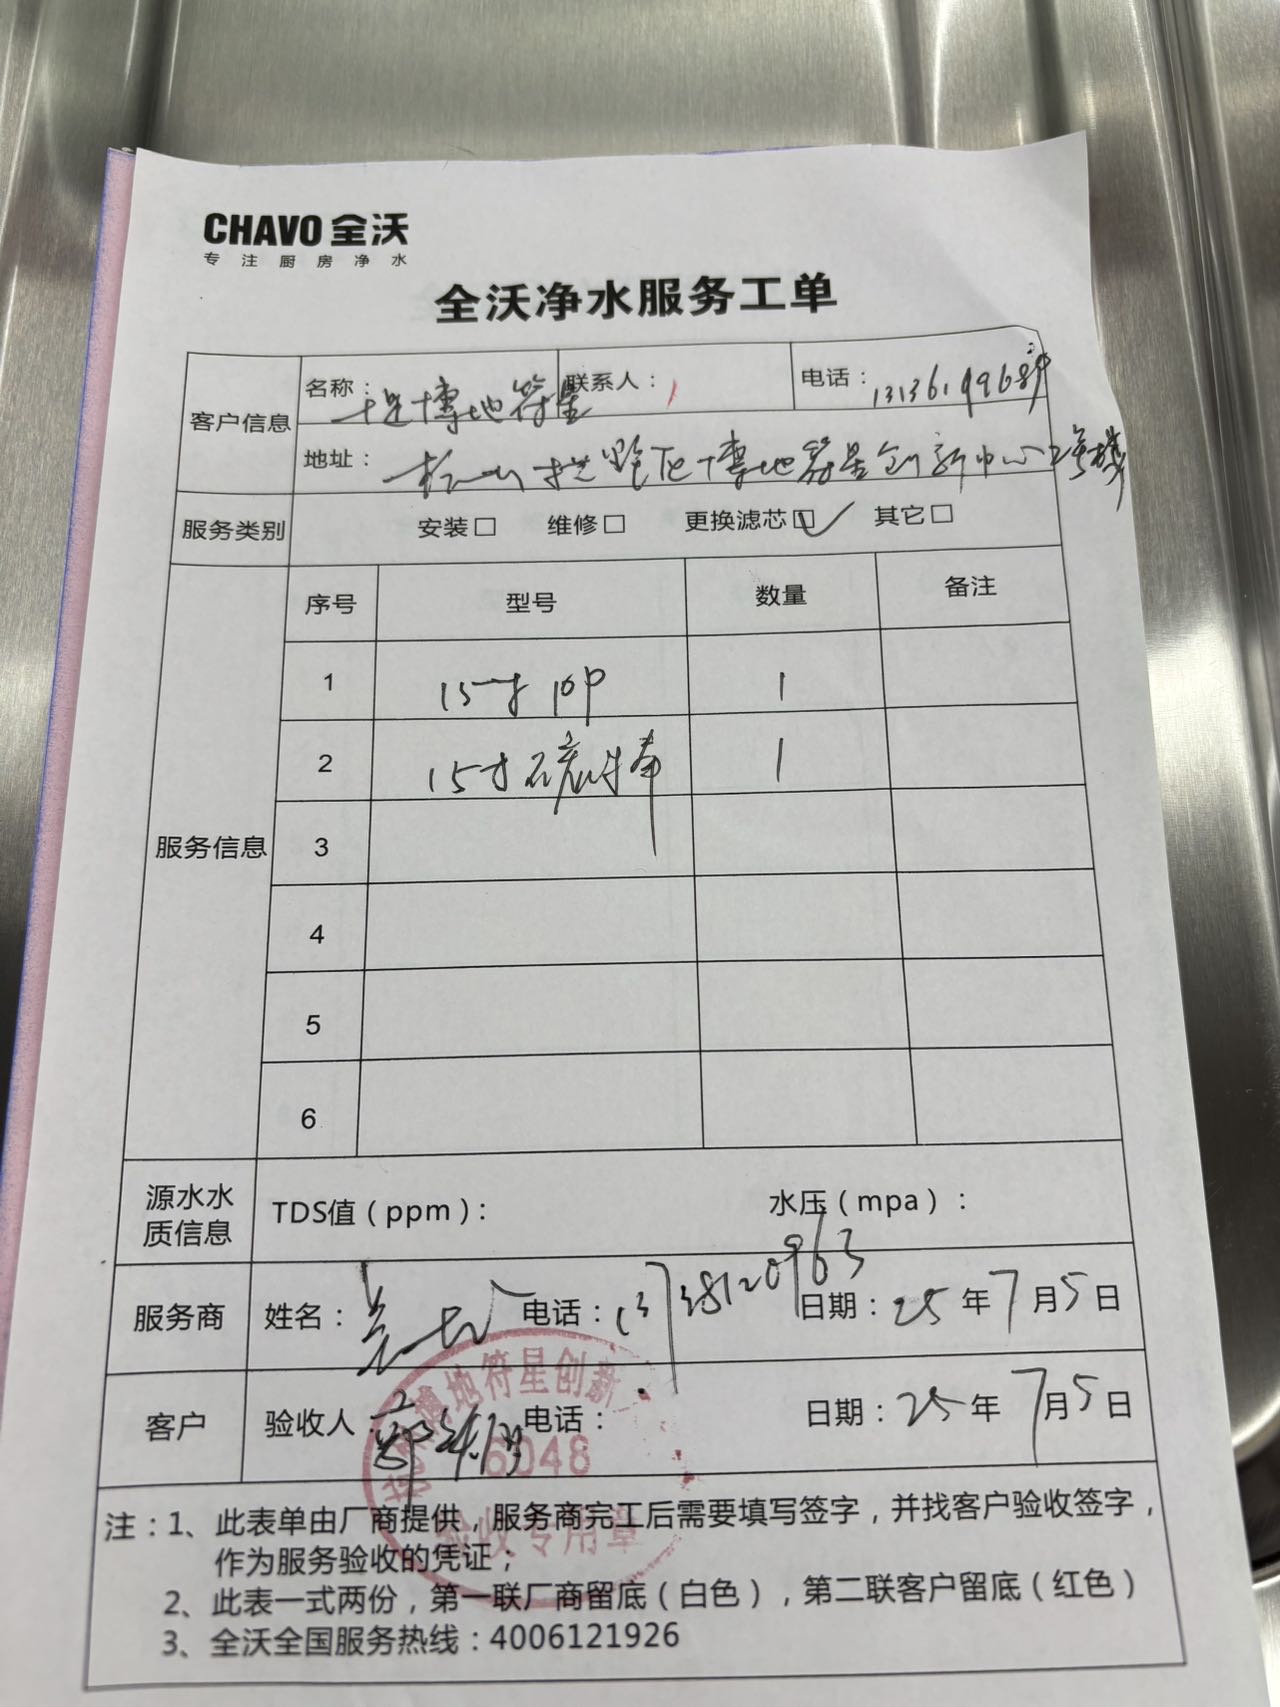 CHAVO 全沃
专注厨房净水
全沃净水服务工单
客户信息 名称: 博地符星 联系人: 电话:
地址: 博地符星创新中心2号楼
服务类别 安装□ 维修□ 更换滤芯☑ 其它□
服务信息 序号 型号 数量 备注
1 15寸10P 1
2 15寸 1
3
4
5
6
源水水质信息 TDS值(ppm): 水压(mpa):
服务商 姓名: 电话: 13738120963 日期: 25年7月5日
客户 验收人: 电话: 日期: 25年7月5日
博地符星创新
6048
验收专用章
注:1、此表单由厂商提供,服务商完工后需要填写签字,并找客户验收签字,
作为服务验收的凭证;
2、此表一式两份,第一联厂商留底(白色),第二联客户留底(红色)
3、全沃全国服务热线:4006121926